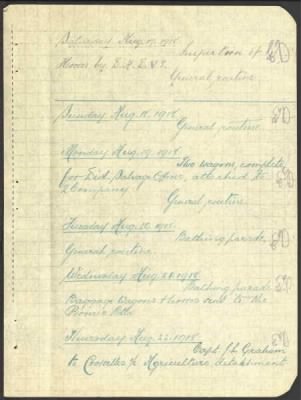 Saturday Aug. 17. 1918.
Inspection of
Horses by D.A.D.V.S.
General routine.
Sunday Aug. 18. 1918.
General routine.
Monday Aug. 19. 1918.
Two wagons, complete
for Div. Salvage Officer, attached to
2 Company.
General routine.
Tuesday Aug. 20. 1918.
Bathing parade,
General routine.
Wednesday Aug. 21. 1918.
Bathing parade.
Baggage wagons & horses sent to the
Thursday Aug. 22. 1918.
Capt. J.L. Graham
to Agriculture detachment